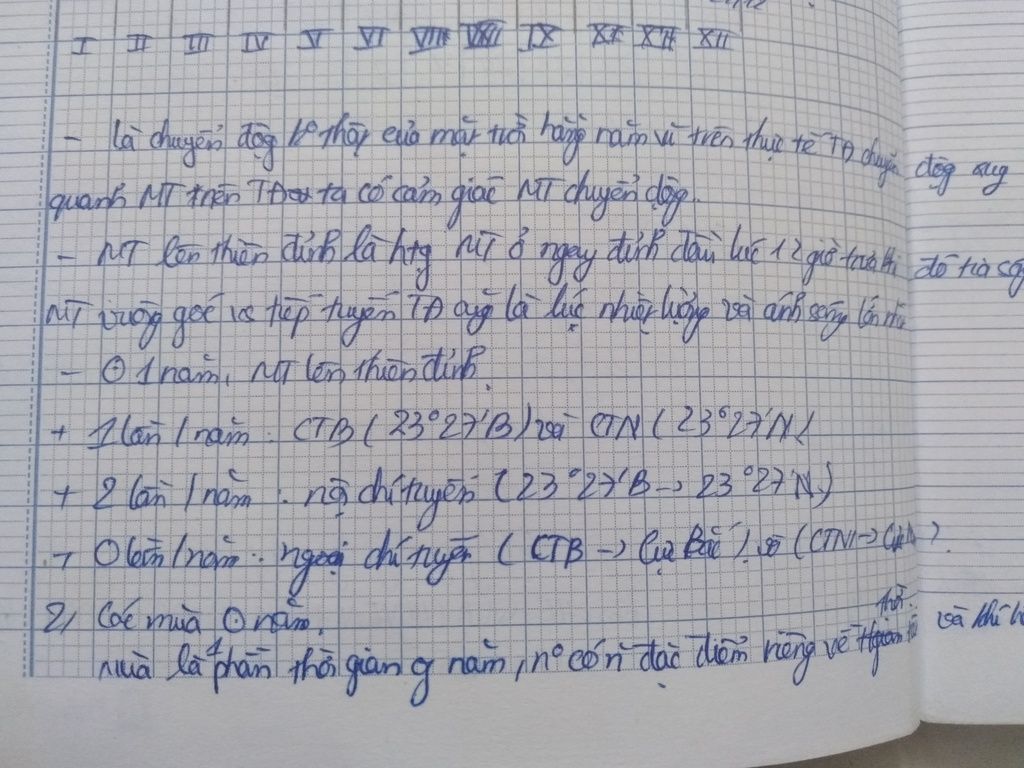 I II III IV V VI VIII VIII IX XI XII XII
- là chuyển động k° thật của mặt trời hàng năm vì trên thực tế TĐ chuyển động xug
quanh MT trên TĐ ta có cảm giác MT chuyển động.
- MT lên thiên đỉnh là htg MT ở ngay đỉnh đầu lúc 12 giờ trưa khi đó tia sg
MT vuông góc vs tiếp tuyến TĐ cug là lúc nhiệt lượng và ánh sáng lớn
- O 1 năm, MT lên thiên đỉnh.
+ 1 lần / năm : CTB ( 23°27'B ) và CTN ( 23°27'N (
+ 2 lần / năm : nội chí tuyến ( 23°27'B → 23°27'N )
+ 0 lần / năm : ngoại chí tuyến ( CTB → Cực Bắc ) và ( CTN → Cực ).
2, Các mùa O năm.
Mùa là 1 phần thời gian g năm, n° có n đặc điểm riêng về thời và khí